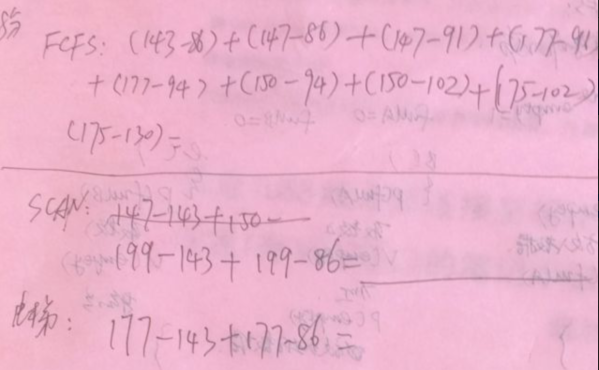 FCFS: (143-86)+(147-86)+(147-91)+(177-91)
+(177-94)+(150-94)+(150-102)+(175-102)
(175-130)=
SCAN: 147-143+150-
199-143+199-86=
电梯: 177-143+177-86=